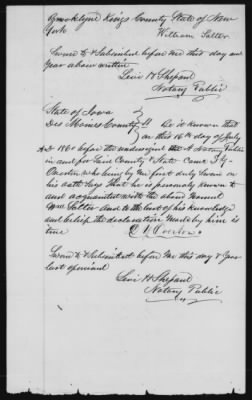 Brooklyne Kings County State of New
York
William Salter
Sworn to & Subscribed before me this day and
Year above written
Levi H Shepard
Notary Public
State of Iowa
Des Moines County } SS Be it known that
on this 16th day of July
A.D. 186 before the undersigned A Notary Public
in and for Said County & State Came
Chester who being by me first duly Sworn on
his oath Says that he is personaly known to
and acquainted with the above named
Wm Salter and to the best of his knowledge
and beleif the declaration Made by him is
true
Sworn to & Subscribed before me this day & Year
last aforesaid
Levi H Shepard
Notary Public